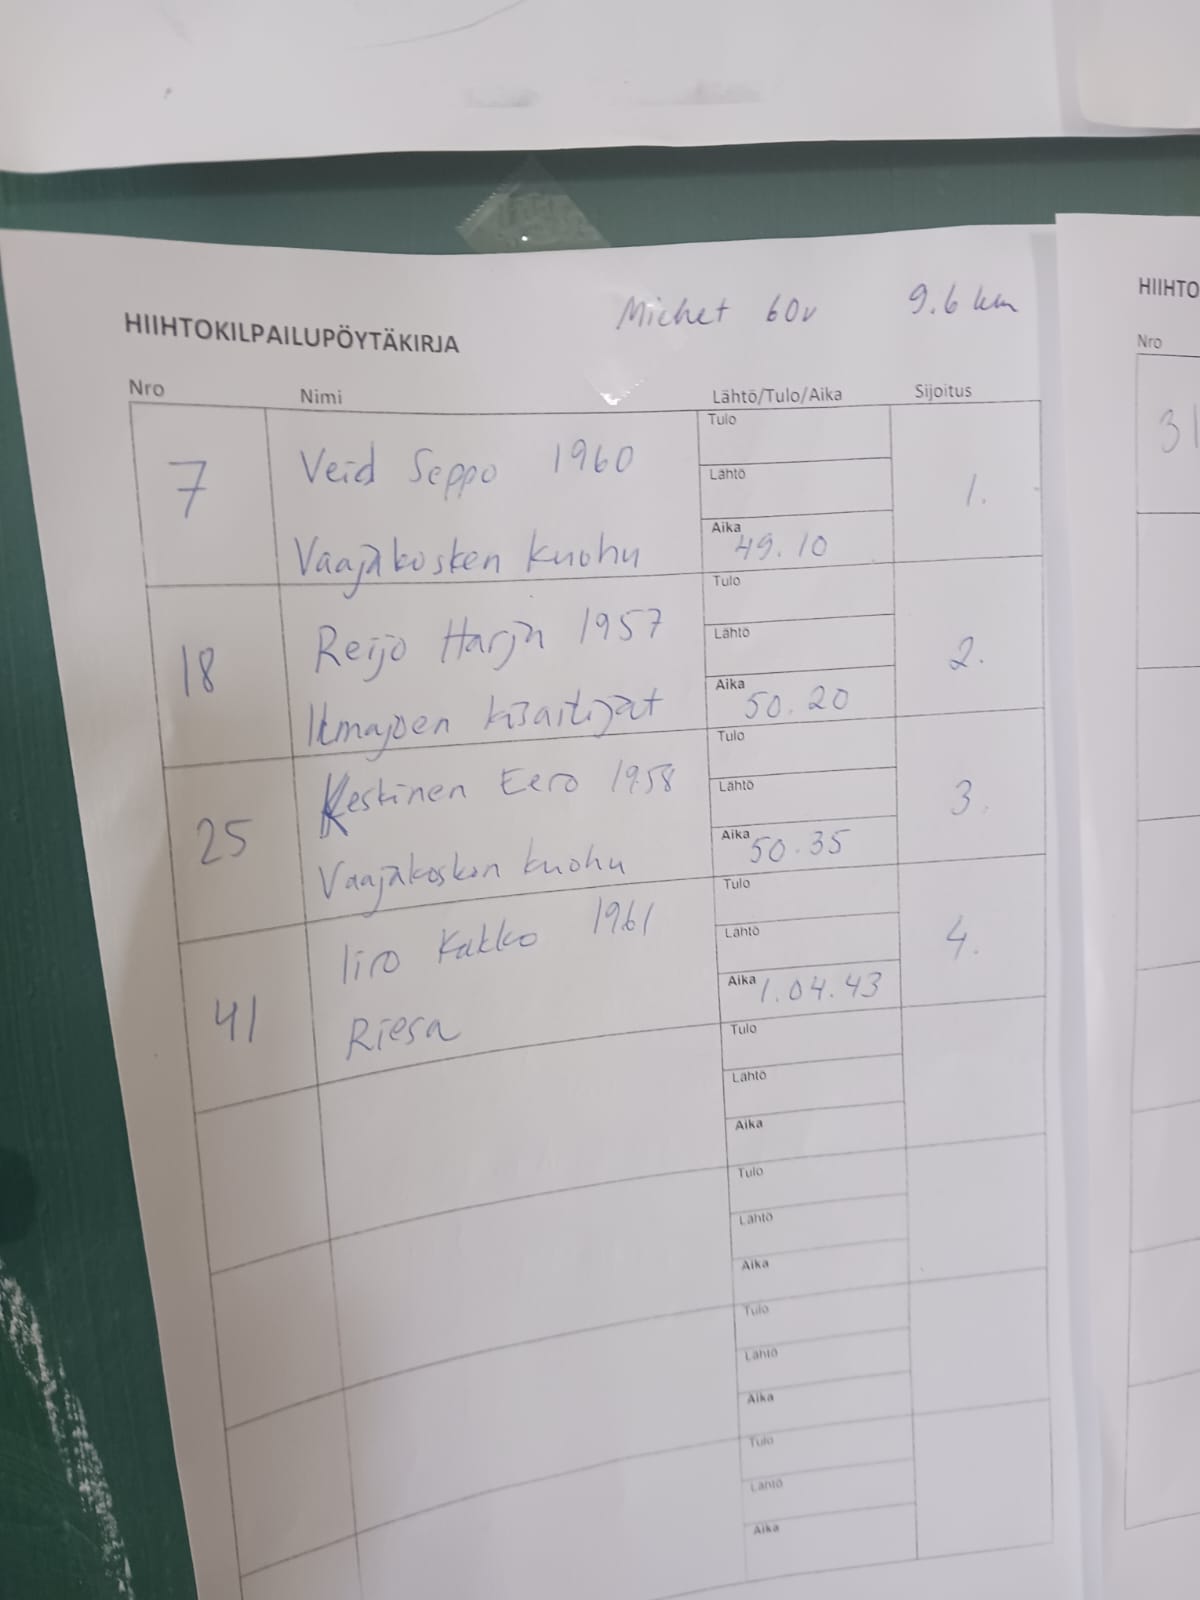 HIIHTOKILPAILUPÖYTÄKIRJA Miehet 60v 9.6 km
Nro Nimi Lähtö/Tulo/Aika Sijoitus
7 Veid Seppo 1960 1.
Vaajakosken kuohu
Tulo
Lähtö
Aika 49.10
18 Reijo Harju 1957 2.
Ilmajoen kisailijat
Tulo
Lähtö
Aika 50.20
25 Keskinen Eero 1958 3.
Vaajakosken kuohu
Tulo
Lähtö
Aika 50.35
41 Iiro Kakko 1961 4.
Riesa
Tulo
Lähtö
Aika 1.04.43
Tulo
Lähtö
Aika
Tulo
Lähtö
Aika
Tulo
Lähtö
Aika
Tulo
Lähtö
Aika
HIIHTO
Nro
31